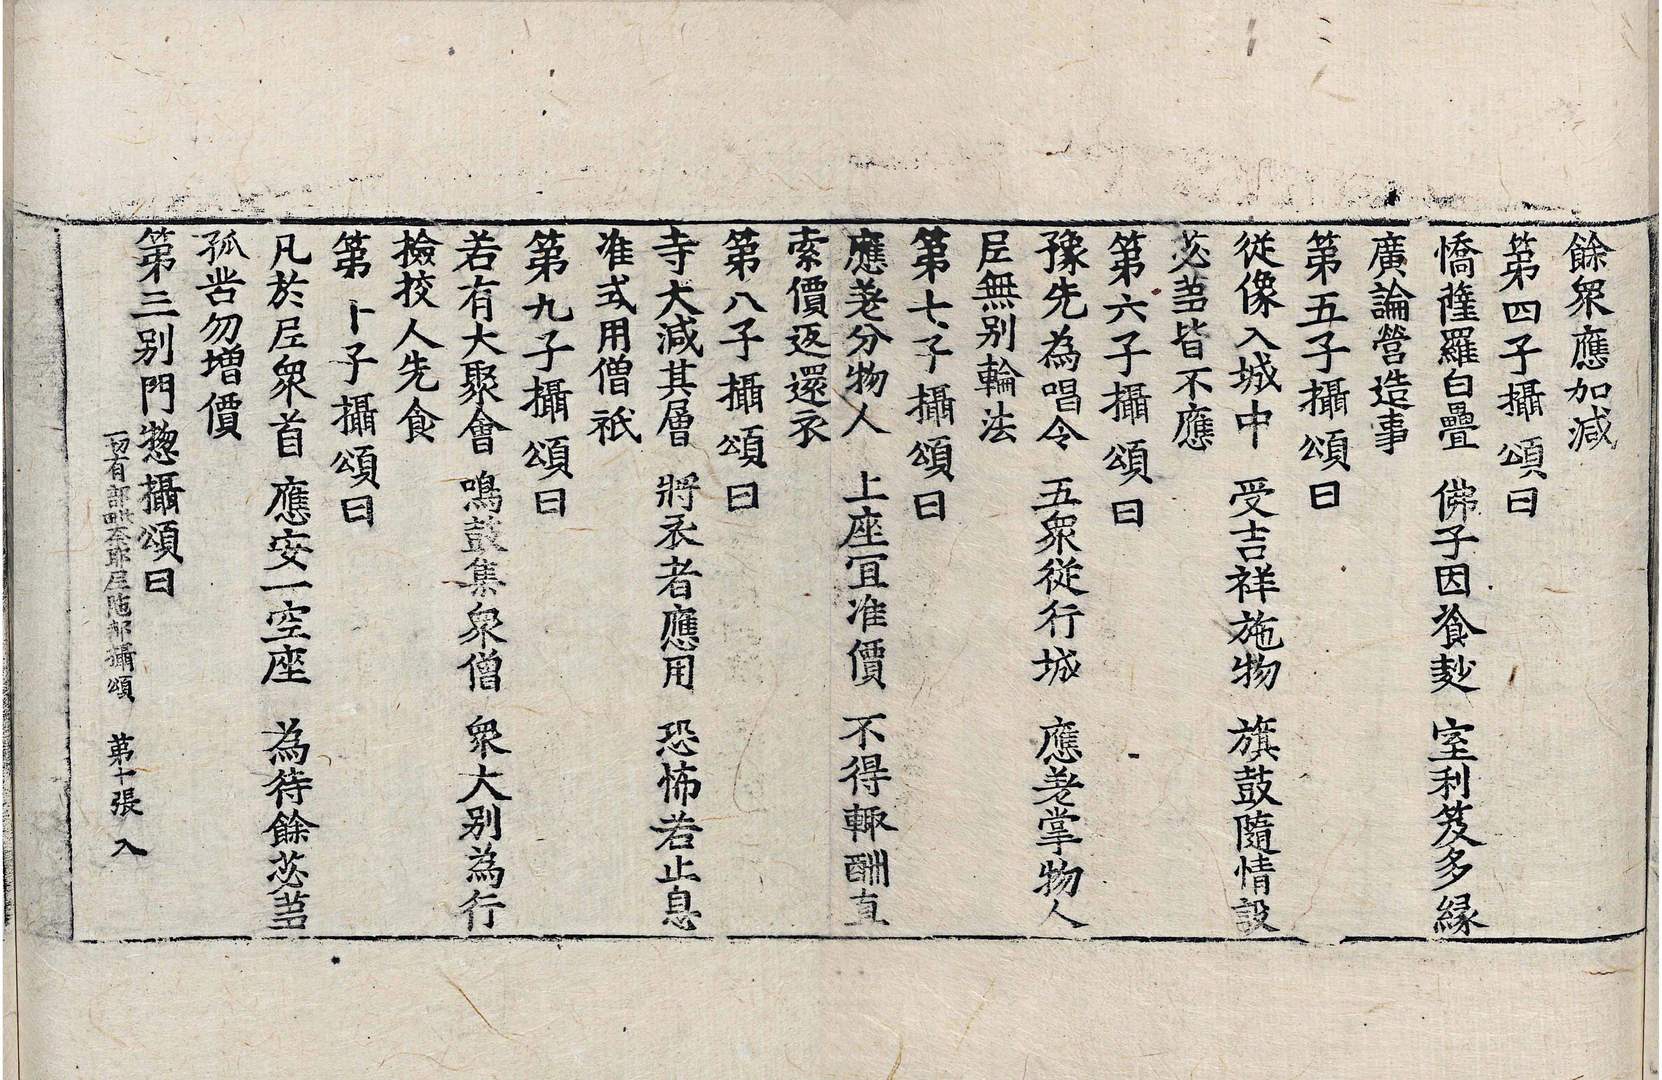 餘衆應加減
第四子攝頌曰
憍薩羅白疊　佛子因飡麨　室利笈多緣
廣論營造事
第五子攝頌曰
從像入城中　受吉祥施物　旗鼓隨情設
苾蒭皆不應
第六子攝頌曰
豫先為唱令　五衆從行城　應差掌物人
尼無別輪法
第七子攝頌曰
應差分物人　上座冝准價　不得輙酬直
索價返還衣
第八子攝頌曰
寺大減其層　將衣者應用　恐怖若止息
准式用僧祇
第九子攝頌曰
若有大聚會　鳴鼓集衆僧　衆大別為行
撿挍人先食
第十子攝頌曰
凡於尼衆首　應安一空座　為待餘苾蒭
孤苦勿增價
第三別門惣攝頌曰
一切有部毗奈耶尼陁那攝頌　第十張　入